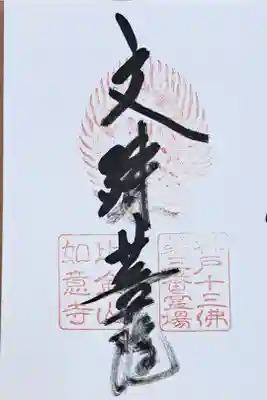 文殊菩薩
神戸十三佛
第三番霊場
比金山
如意寺